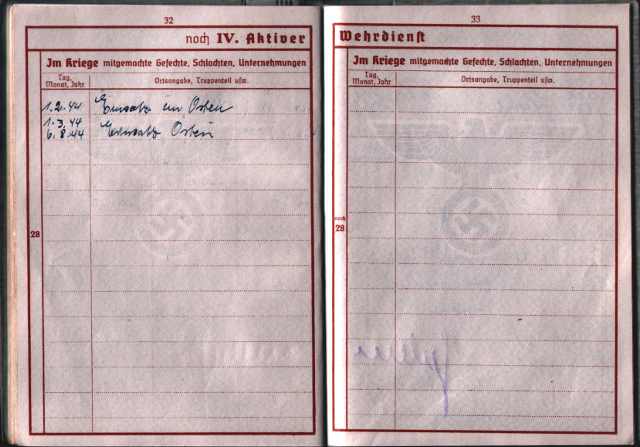 32
noch IV. Aktiver
Im Kriege mitgemachte Gefechte, Schlachten, Unternehmungen
Tag, Monat, Jahr
Ortsangabe, Truppenteil usw.
1.2.44 Einsatz im Osten
1.3.44
6.8.44 Einsatz Osten
28
33
Wehrdienst
Im Kriege mitgemachte Gefechte, Schlachten, Unternehmungen
Tag, Monat, Jahr
Ortsangabe, Truppenteil usw.
noch
28